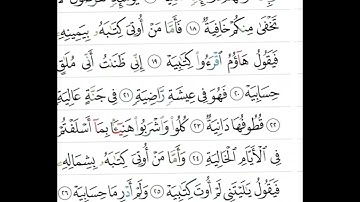 تَخْفَىٰ مِنكُمْ خَافِيَةٌ ١٨ فَأَمَّا مَنْ أُوتِىَ كِتَٰبَهُۥ بِيَمِينِهِۦ
فَيَقُولُ هَآؤُمُ ٱقْرَءُوا۟ كِتَٰبِيَهْ ١٩ إِنِّى ظَنَنتُ أَنِّى مُلَٰقٍ
حِسَابِيَهْ ٢٠ فَهُوَ فِى عِيشَةٍ رَّاضِيَةٍ ٢١ فِى جَنَّةٍ عَالِيَةٍ
٢٢ قُطُوفُهَا دَانِيَةٌ ٢٣ كُلُوا۟ وَٱشْرَبُوا۟ هَنِيٓـًٔۢا بِمَآ أَسْلَفْتُمْ
فِى ٱلْأَيَّامِ ٱلْخَالِيَةِ ٢٤ وَأَمَّا مَنْ أُوتِىَ كِتَٰبَهُۥ بِشِمَالِهِۦ
فَيَقُولُ يَٰلَيْتَنِى لَمْ أُوتَ كِتَٰبِيَهْ ٢٥ وَلَمْ أَدْرِ مَا حِسَابِيَهْ ٢٦